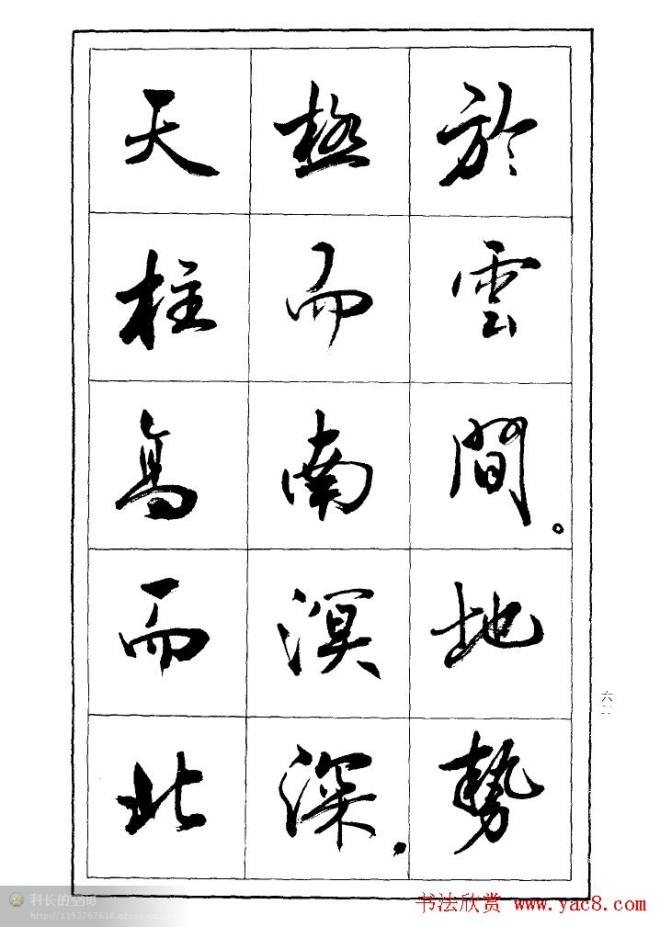 於雲間。地勢
極而南溟深，
天柱高而北
书法欣赏 www.yac8.com